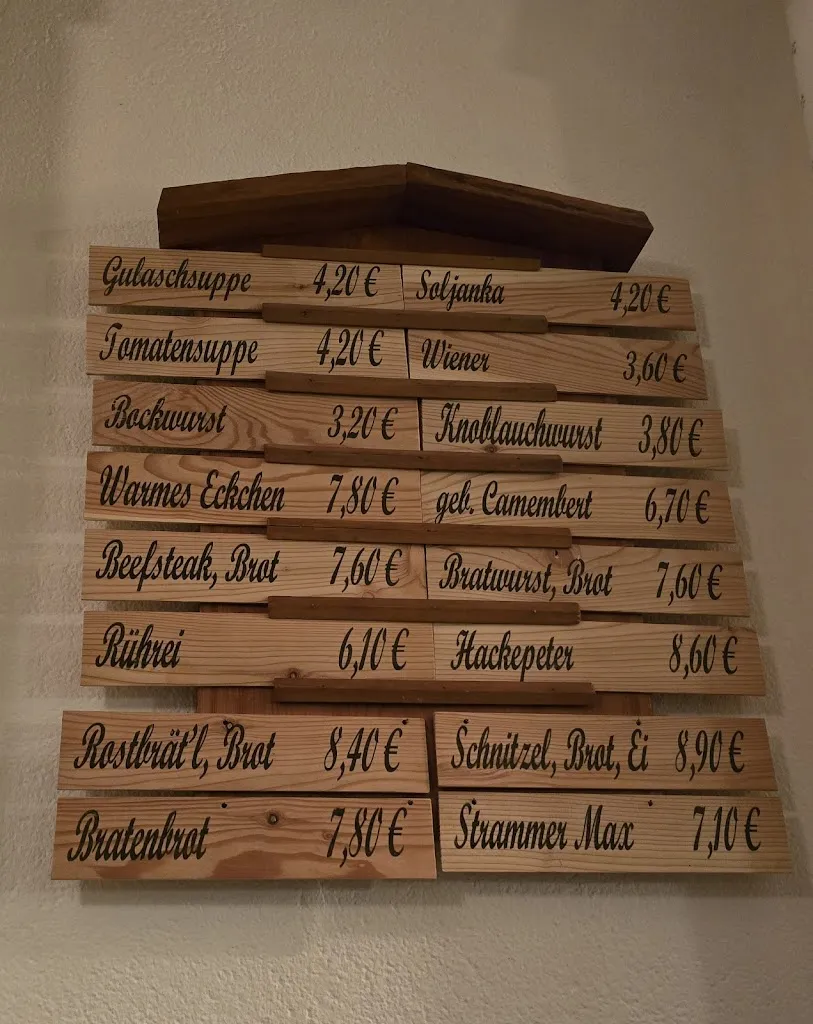 Gulaschsuppe 4,20 € Soljanka 4,20 €
Tomatensuppe 4,20 € Wiener 3,60 €
Bockwurst 3,20 € Knoblauchwurst 3,80 €
Warmes Eckchen 7,80 € geb. Camembert 6,70 €
Beefsteak, Brot 7,60 € Bratwurst, Brot 7,60 €
Rührei 6,10 € Hackepeter 8,60 €
Rostbrät'l, Brot 8,40 € Schnitzel, Brot, Ei 8,90 €
Bratenbrot 7,80 € Strammer Max 7,10 €